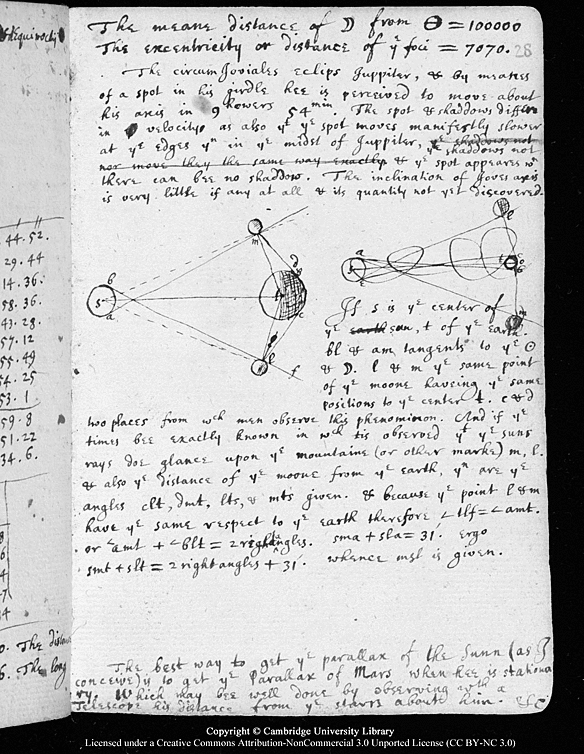 The meane distance of ☽ from ⊖ = 100000
The excentricity or distance of yᵉ foci = 7070. 28
The circumJoviales eclips Juppiter, & by meanes
of a spot in his girdle hee is perceived to move about
his axis in 9 howers 54 min. The spot & shaddows differ
in velocity, as also yᵗ yᵉ spot moves manifestly slower
at yᵉ edges yⁿ in yᵉ midst of Juppiter, yᵉ shaddows not
shaddows not
nor move they the same way exactly & yᵉ spot appeares wⁿ
there can bee no shaddow. The inclination of Joves axis
is very little if any at all & its quantity not yet discovered.
If s is yᵉ center of
yᵉ earth sun, t of yᵉ earth
bl & am tangents to yᵉ ⊙
& ☽. l & m yᵉ same point
of yᵉ moone haveing yᵉ same
positions to yᵉ center t. c & d
two places from wᶜʰ men observe this phenomenon. And if yᵉ
times bee exactly known in wᶜʰ tis observed yᵗ yᵉ suns
rays doe glance upon yᵉ mountaine (or other marke) m, l.
& also yᵉ distance of yᵉ moone from yᵉ earth, yⁿ are yᵉ
angles clt, dmt, lts, & mts given. & because yᵉ point l & m
have yᵉ same respect to yᵉ earth therefore ∠tlf = ∠amt.
or ∠amt + ∠blt = 2 right angles. sma + sla = 31′. Ergo
smt + slt = 2 right angles + 31′. whence msl is given.
The best way to get yᵉ parallax of the Sunn (as I
conceive) is to get yᵉ Parallax of Mars when hee is stationa
ry. Which may bee well done by observing with a
Telescope his distance from yᵉ starrs about him. &c
44. 52.
29. 44
14. 36.
58. 36.
43. 28.
57. 12
55. 49
54. 25
53. 1
59. 8
51. 22
34. 6.
Copyright © Cambridge University Library
Licensed under a Creative Commons Attribution-NonCommercial 3.0 Unported License (CC BY-NC 3.0)